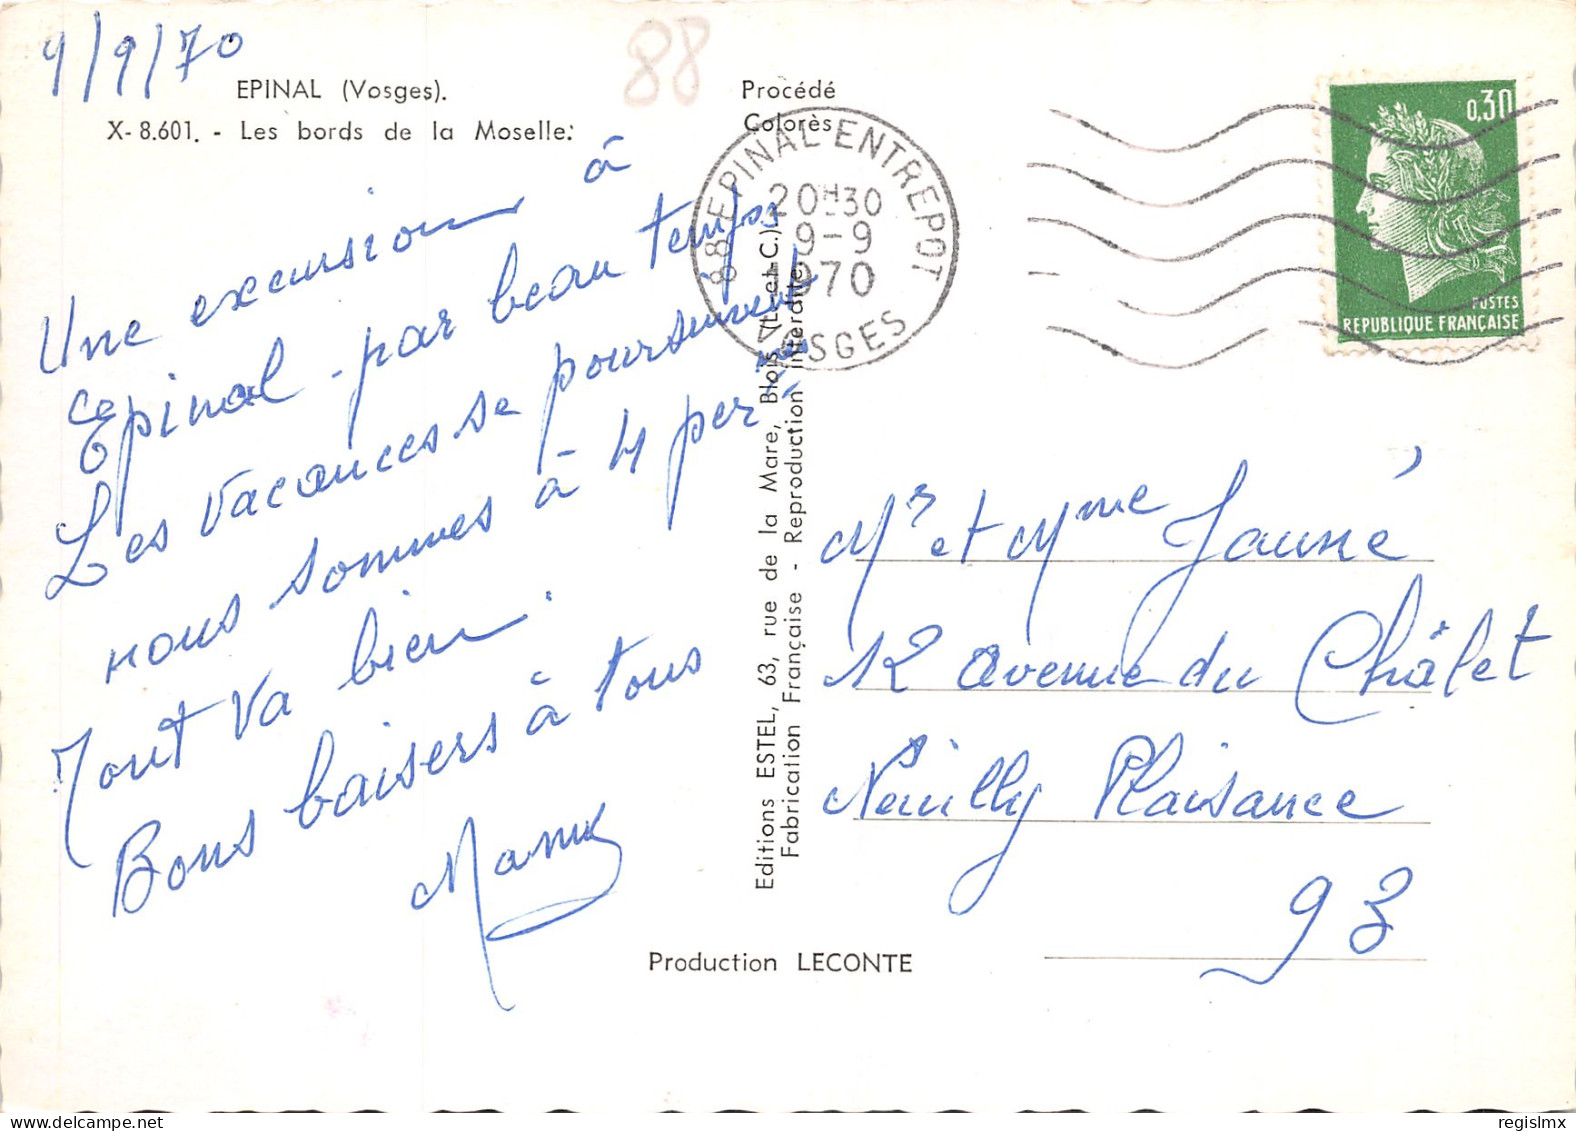 9/9/70
88
EPINAL (Vosges).
X-8.601. - Les bords de la Moselle.
Procédé
Colorès
Une excursion à
Epinal - par beau temps
Les vacances se poursuivent
nous sommes à 4 per
Tout va bien.
Bons baisers à tous
88 EPINAL ENTREPOT
20H30
9-9
1970
VOSGES
0,30
POSTES
REPUBLIQUE FRANÇAISE
Editions ESTEL, 63, rue de la Mare, Blois (L.-et-C.)
Fabrication Française - Reproduction interdite.
Mr et Mme Jauné
12 avenue du Châlet
Neuilly Plaisance
93
Production LECONTE
regislmx
delcampe.net